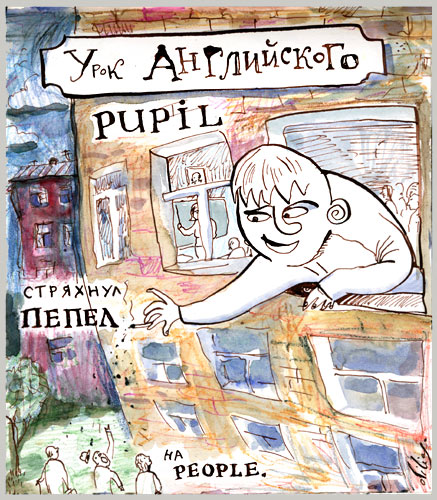 Урок Английского
PUPiL
СТРЯХНУЛ
ПЕПЕЛ
НА
PEOPLE.